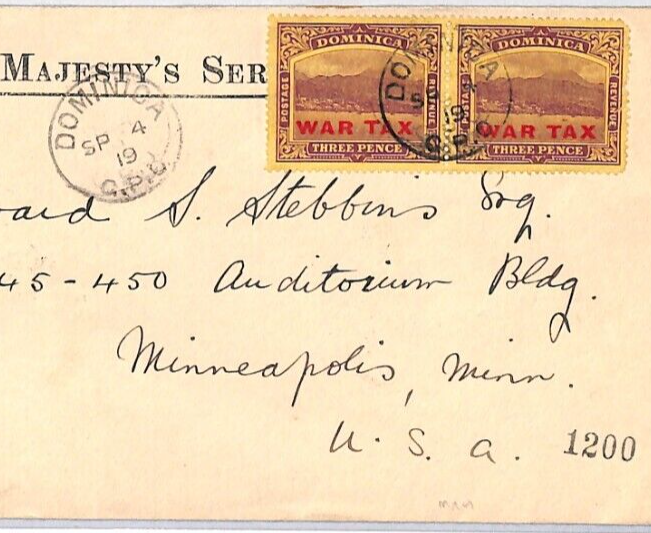 MAJESTY'S SER
DOMINICA
SP 4
19
G.P.O.
DOMINICA
POSTAGE
REVENUE
WAR TAX
THREE PENCE
DOMINICA
POSTAGE
REVENUE
WAR TAX
THREE PENCE
DOMINICA
SP 4
19
G.P.O.
ward S. Stebbins Esq.
45-450 Auditorium Bldg.
Minneapolis, Minn.
U. S. a.
1200